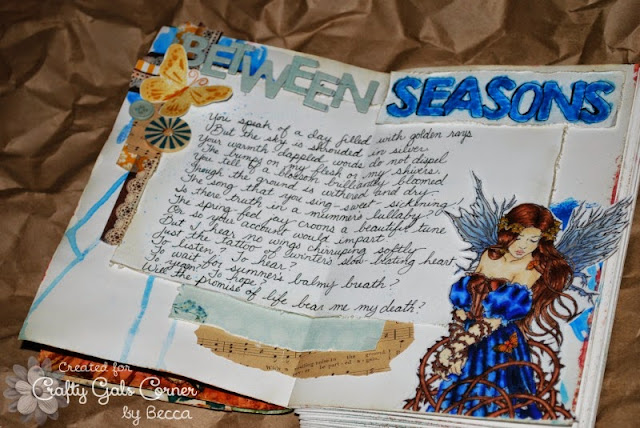 BETWEEN
SEASONS
You speak of a day filled with golden rays
But the sky is shrouded in silver
Your warmth dappled words do not dispel
The bumps on my flesh or my shivers.
You tell of a blossom brilliantly bloomed
Though the ground is withered and dry—
The song that you sing - sweet, sickening,
Is there truth in a mummer's lullaby?
The spring fed jay croons a beautiful tune
Or so your account would impart
But I hear no wings chirruping softly
Just the tattoo of winter's slow-blating heart
To listen? To hear?
To wait for summer's balmy breath?
To yearn? To hope?
Will the promise of life bear me my death?
Created for
Crafty Gals Corner
by Becca